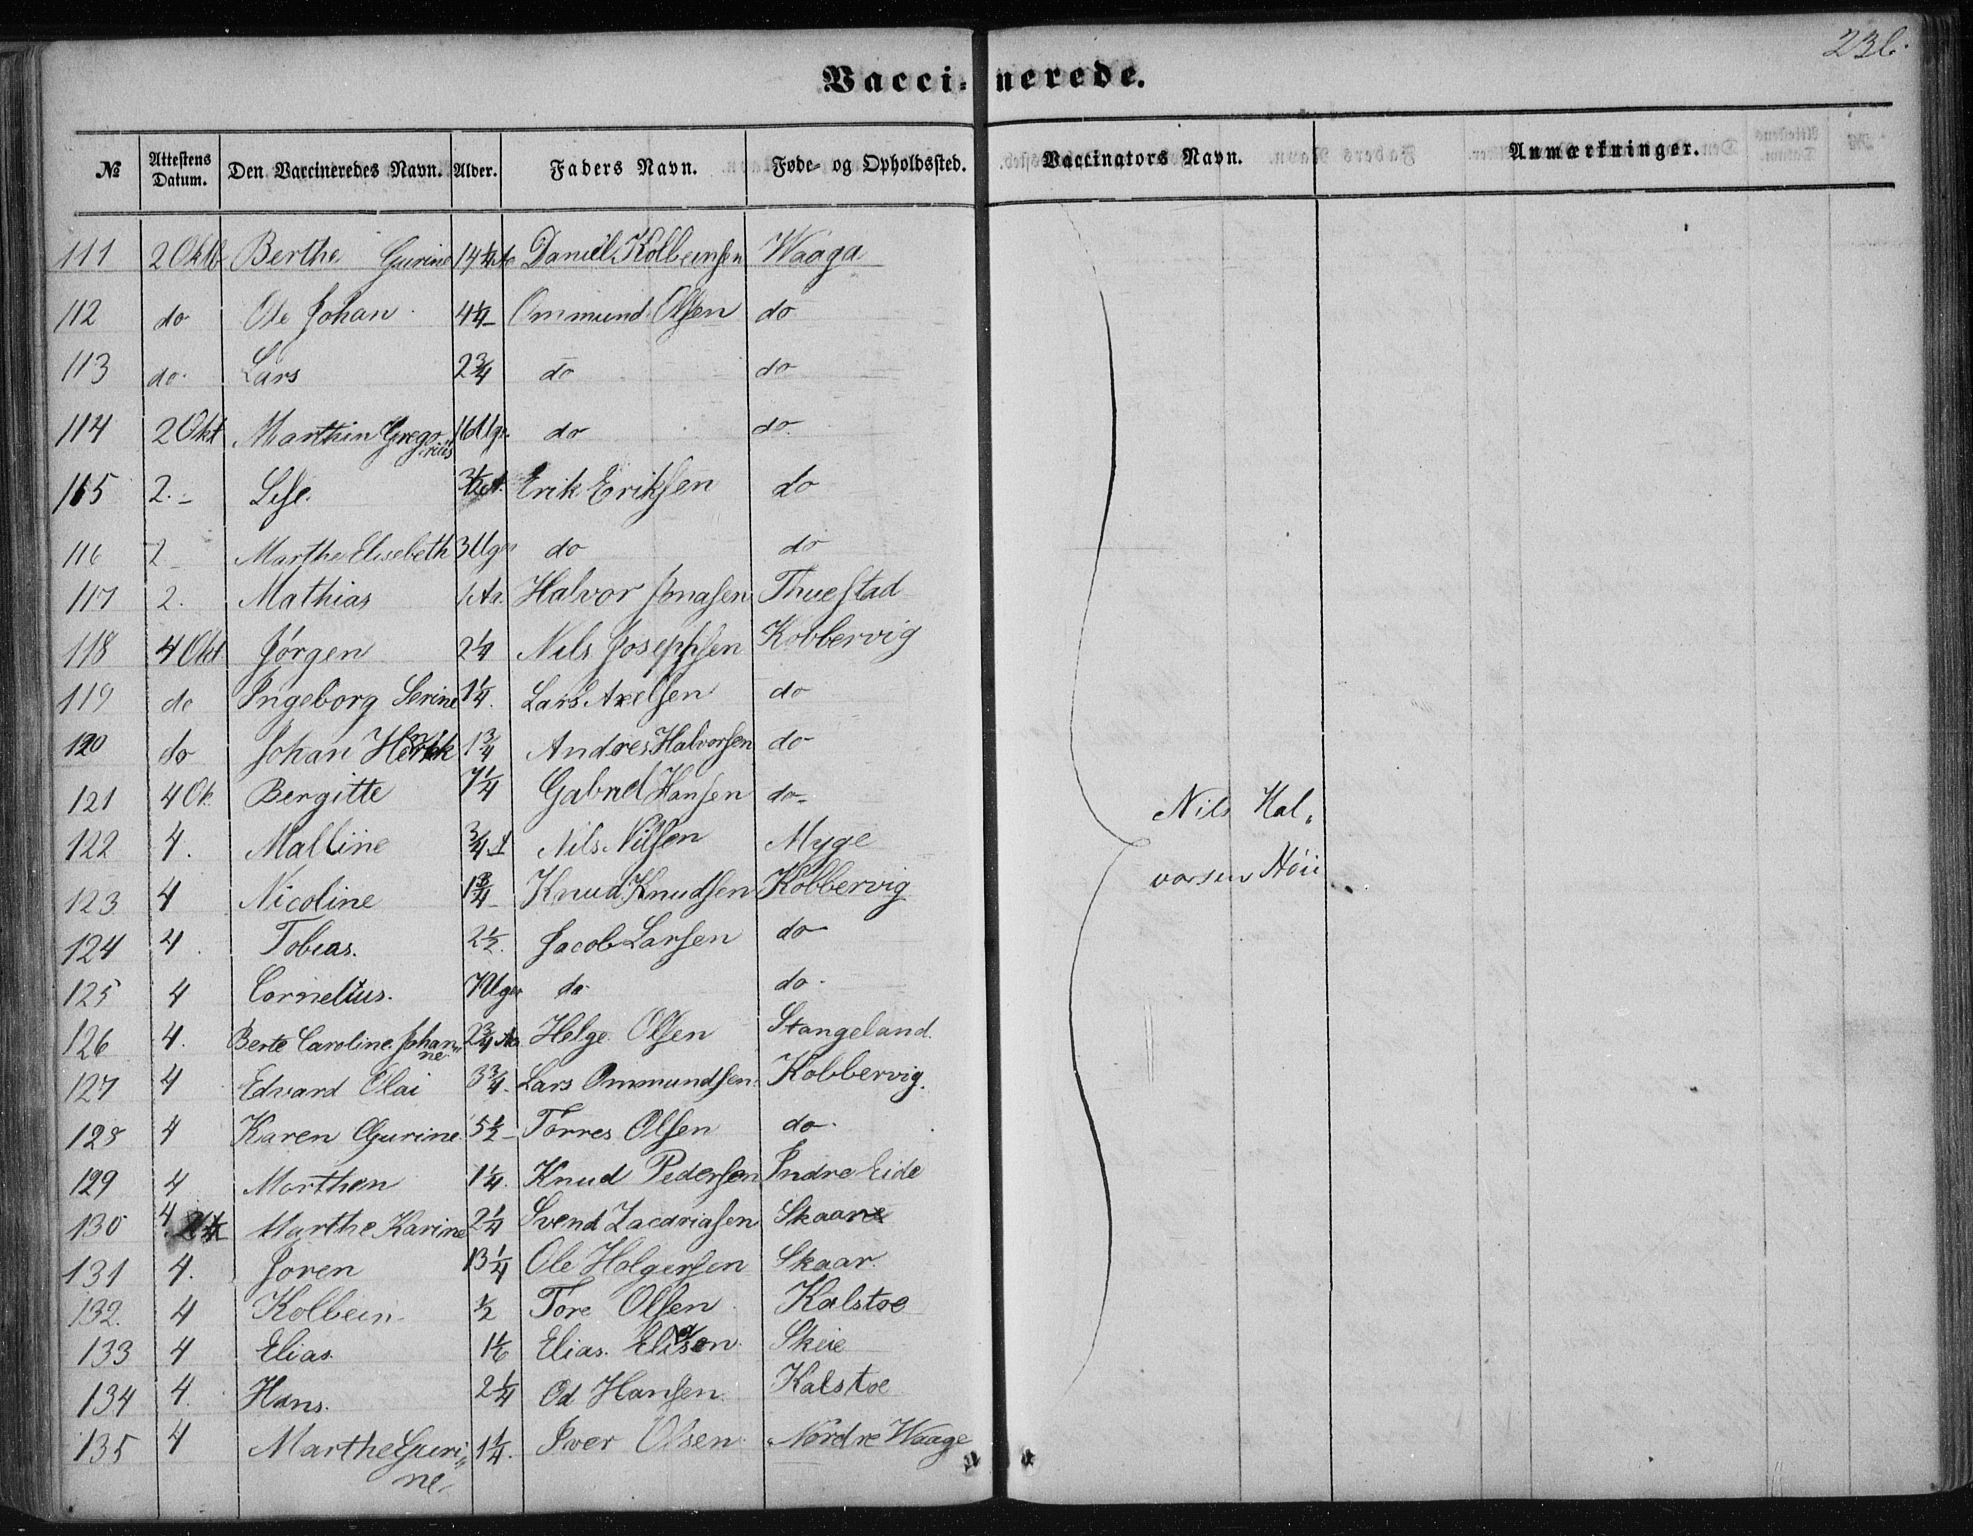 236.
Vaccinerede.
№ Attestens Datum. Den Vaccineredes Navn. Alder. Faders Navn. Føde- og Opholdssted. Vaccinators Navn. Anmærkninger.
111 2 Okt Berthe Gurine 14 1/4 Daniel Kolbeinsen Waaga
112 do Ole Johan 4 1/4 Ommund Olsen do
113 do Lars 2 3/4 do do
114 2 Okt Marthin Gregorius 16 Uger do do
115 2 Erik Eriksen do
116 2 Marthe Elisebeth 3 Uger do do
117 2. Mathias Halvor Jonasen Thuestad
118 4 Okt Jörgen 2 1/4 Nils Josephsen Kobbervig
119 do Ingeborg Serine 1 1/4 Lars Axelsen do
120 do Johan Henrik 1 3/4 Andres Halvorsen do
121 4 Ok. Bergitte 7 1/4 Gabriel Hansen do
122 4. Malliine 3/4 Nils Nilsen Myge
123 4 Nicoline 1 3/4 Knud Knudsen Kobbervig
124 4. Tobias. 2 1/2 Jacob Larsen do
125 4 Cornelius. 7 Uger do do
126 4. Berte Caroline Johanne 2 3/4 Aa Helge Olsen Stangeland.
127 4 Edvard Olai 3 3/4 Lars Ommundsen Kobbervig.
128 4 Karen Gurine 5 1/2 Törres Olsen do
129 4 Morthen 1 1/4 Knud Pedersen Indre Eide
130 4 Marthe Karine 2 1/4 Svend Zacariasen Skaare
131 4. Joren 13 1/4 Ole Holgersen Skaar.
132. 4 Kolbein 1/2 Tore Olsen Kalstoe
133 4 Elias 1 1/6 Elias Skeie
134 4. Hans. 2 1/4 Od Hansen Kalstoe
135 4 Marthe Gurine 1 1/4 Iver Olsen Nordre Waage
Nils Hal-
vorsen Höie